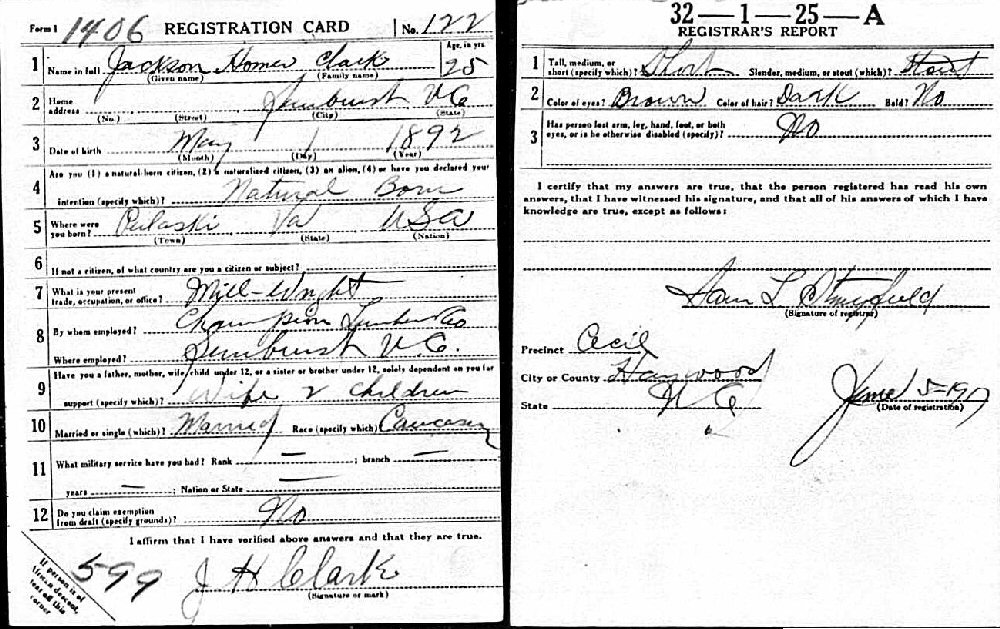 Form 1 1406 REGISTRATION CARD No. 122
1 Name in full Jackson Homer Clark Age, in yrs 25
(Given name) (Family name)
2 Home address Sunburst N C
(No.) (Street) (City) (State)
3 Date of birth May 1 1892
(Month) (Day) (Year)
4 Are you (1) a natural-born citizen, (2) a naturalized citizen, (3) an alien, (4) or have you declared your
intention (specify which)? Natural Born
5 Where were you born? Pulaski Va USA
(Town) (State) (Nation)
6 If not a citizen, of what country are you a citizen or subject?
7 What is your present trade, occupation, or office? Mill-Wright
8 By whom employed? Champion Lumber Co
Where employed? Sunburst N.C.
9 Have you a father, mother, wife, child under 12, or a sister or brother under 12, solely dependent on you for
support (specify which)? Wife 2 children
10 Married or single (which)? Married Race (specify which)? Caucasian
11 What military service have you had? Rank — ; branch —
years — ; Nation or State —
12 Do you claim exemption from draft (specify grounds)? No
I affirm that I have verified above answers and that they are true.
J H Clark
(Signature or mark)
599
If person is of
African descent,
tear off this
corner
32—1—25—A
REGISTRAR'S REPORT
1 Tall, medium, or short (specify which)? Short Slender, medium, or stout (which)? Stout
2 Color of eyes? Brown Color of hair? Dark Bald? No
3 Has person lost arm, leg, hand, foot, or both eyes, or is he otherwise disabled (specify)? No
I certify that my answers are true, that the person registered has read his own
answers, that I have witnessed his signature, and that all of his answers of which I have
knowledge are true, except as follows:
Sam L Stringfield
(Signature of registrar)
Precinct Cecil
City or County Haywood
State N C
June 5-1917
(Date of registration)